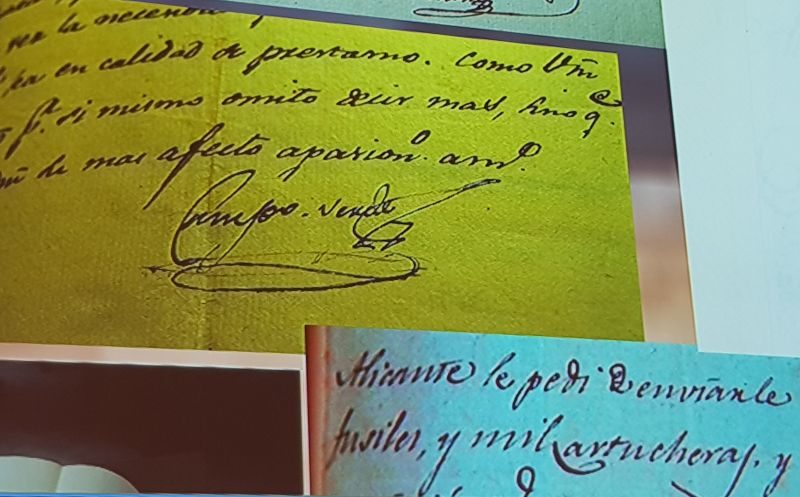 ser la necesidad
en calidad de prestamo. Como Vm̃
pr. si mismo omito decir mas, sino qe.
de mas afecto apasiono. amo.
Campo. Verde
Alicante le pedi enviarle
fusiles, y mil cartucheras, y